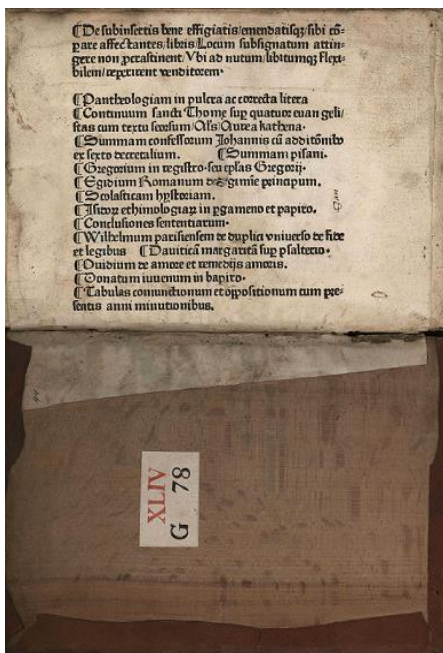 ⸿De subinsertis bene effigiatis/emendatisqꝫ/sibi cō⸗
ꝑare affectantes/libris/Locum subsignatum attin⸗
gere non ꝓcrastinent/Vbi ad nutum/libitumqꝫ flexi⸗
bilem/repperient venditorem·
⸿Pantheologiam in pulcra ac correcta litera
⸿Continuum sancti Thome suꝑ quatuor euangeli/
stas cum textu seorsum/Al's/Aurea kathena·
⸿Summam confessorum Johannis cū additōnibꝰ
ex sexto decretalium. ⸿Summam pisani.
⸿Gregorium in registro·seu ep̄las Gregorij·
⸿Egidium Romanum de Regimīe principum.
⸿Scolasticam hystoriam.
⸿Isidoꝝ ethimologiaꝝ in ꝑgameno et papiro.
⸿Conclusiones sententiarum·
⸿Wilhelmum parisiensem de duplici vniuerso de fide
et legibus ⸿Dauiticā margaritā suꝑ psalterio·
⸿Ouidium de amore et remedijs amoris.
⸿Donatum iuuenum in bapiro·
⸿Tabulas coniunctionum et oppositionum cum pre⸗
sentis anni minutionibus.
XLIV
G 78